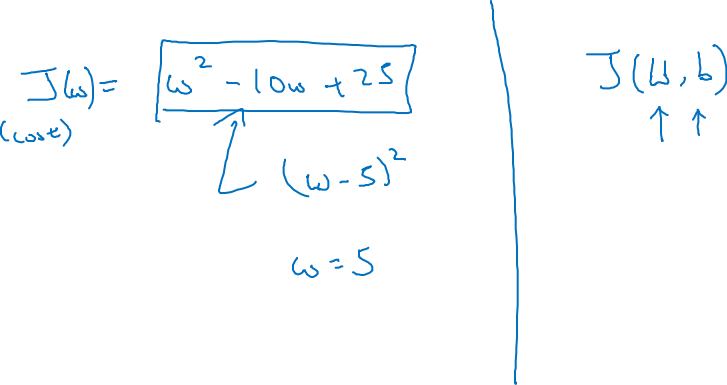 J(w) = w² - 10w + 25
(cost)
(w - 5)²
w = 5
J(W, b)